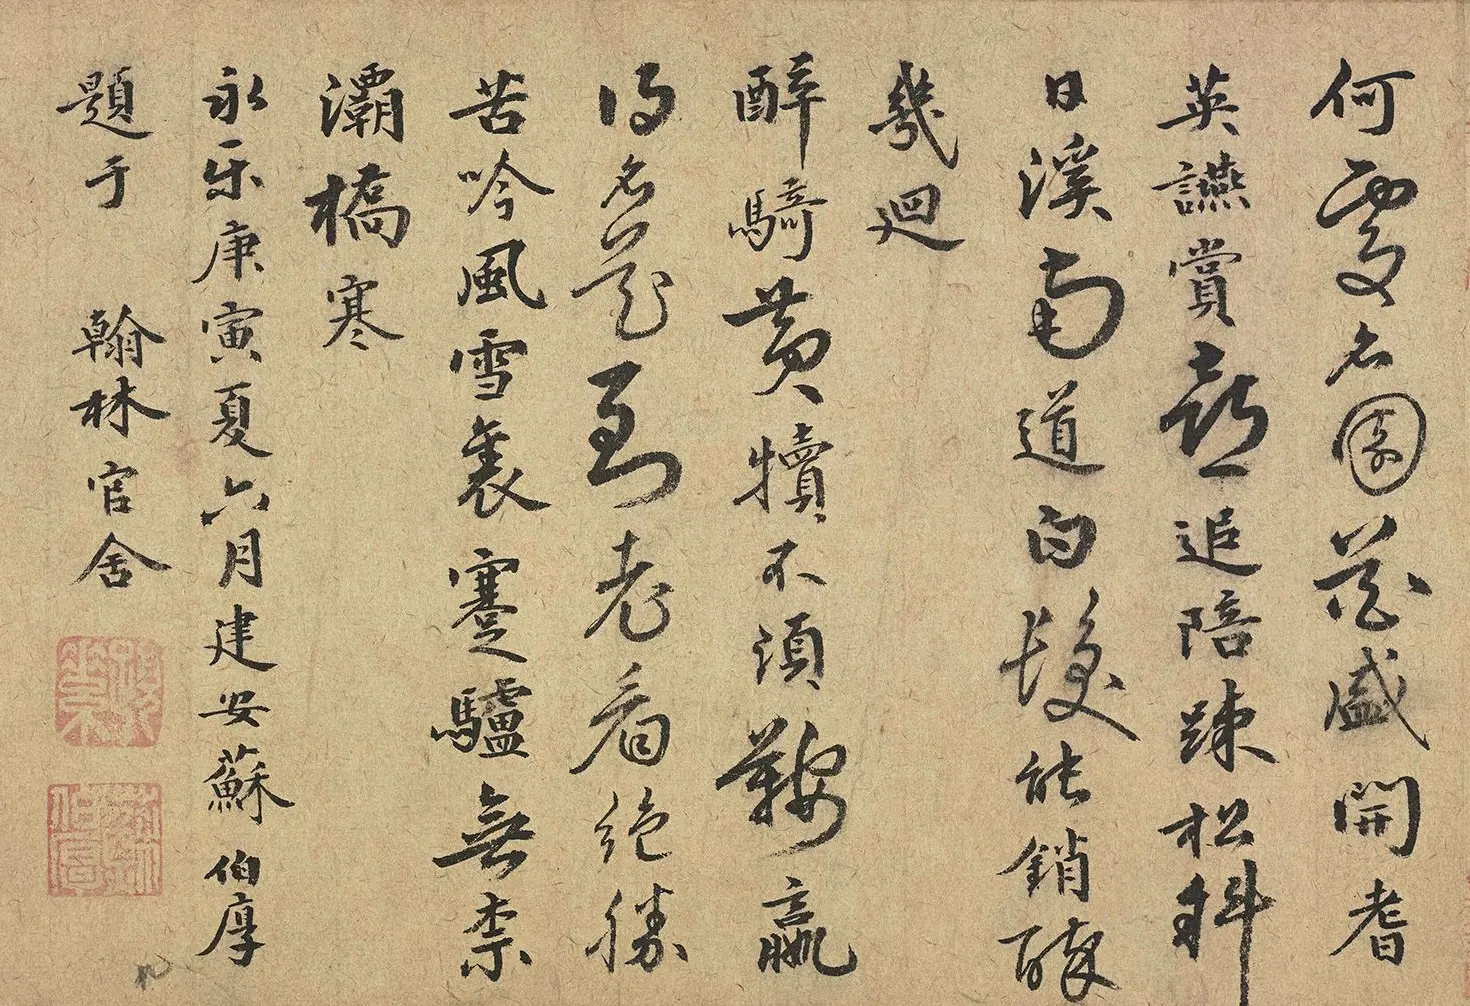 何處名園花盛開耆
英讌賞追陪踈松斜
日溪南道白髮能銷醉
幾迴
醉騎黃犢不須鞍贏
得名花到老看絕勝
苦吟風雪裏蹇驢無柰
灞橋寒
永樂庚寅夏六月建安蘇伯厚
題于翰林官舍